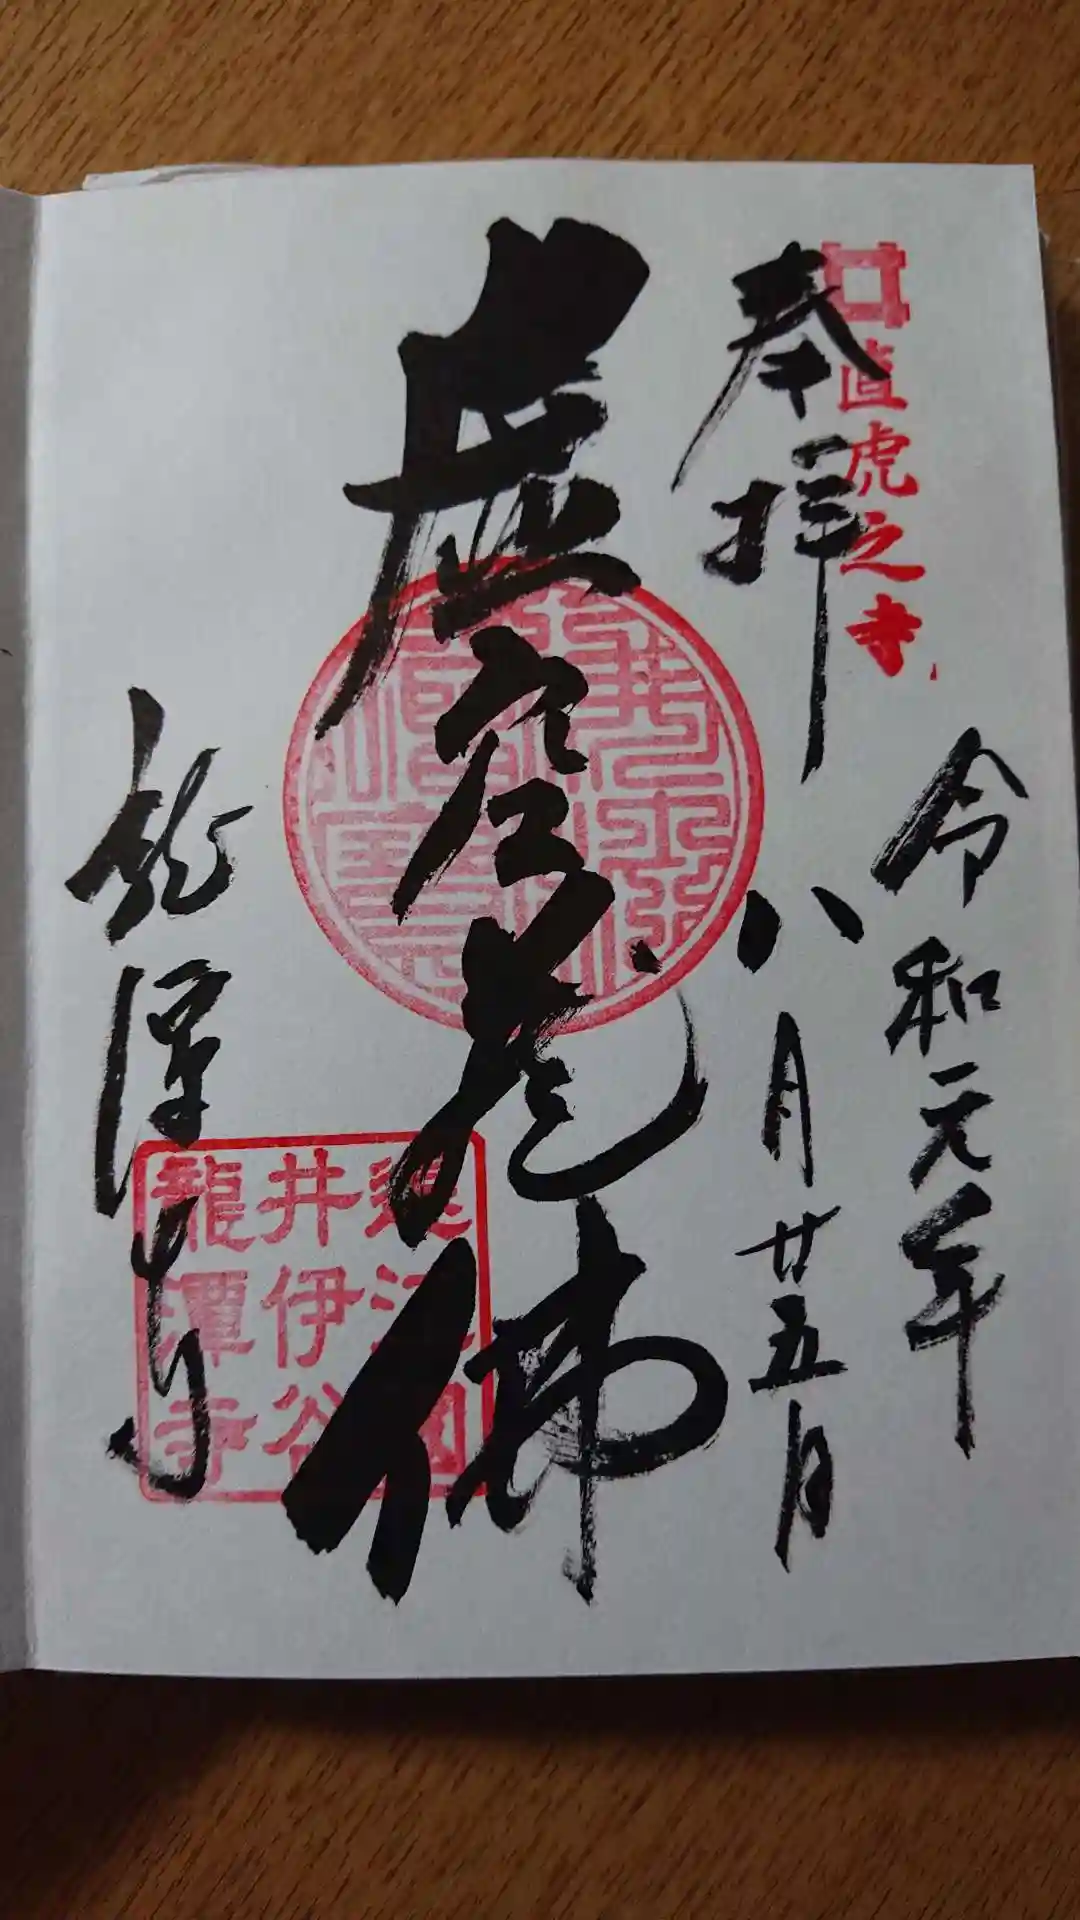 直虎之寺
奉拝
令和元年
八月廿五日
虚空蔵佛
龍潭寺
遠江國
井伊谷
龍潭寺